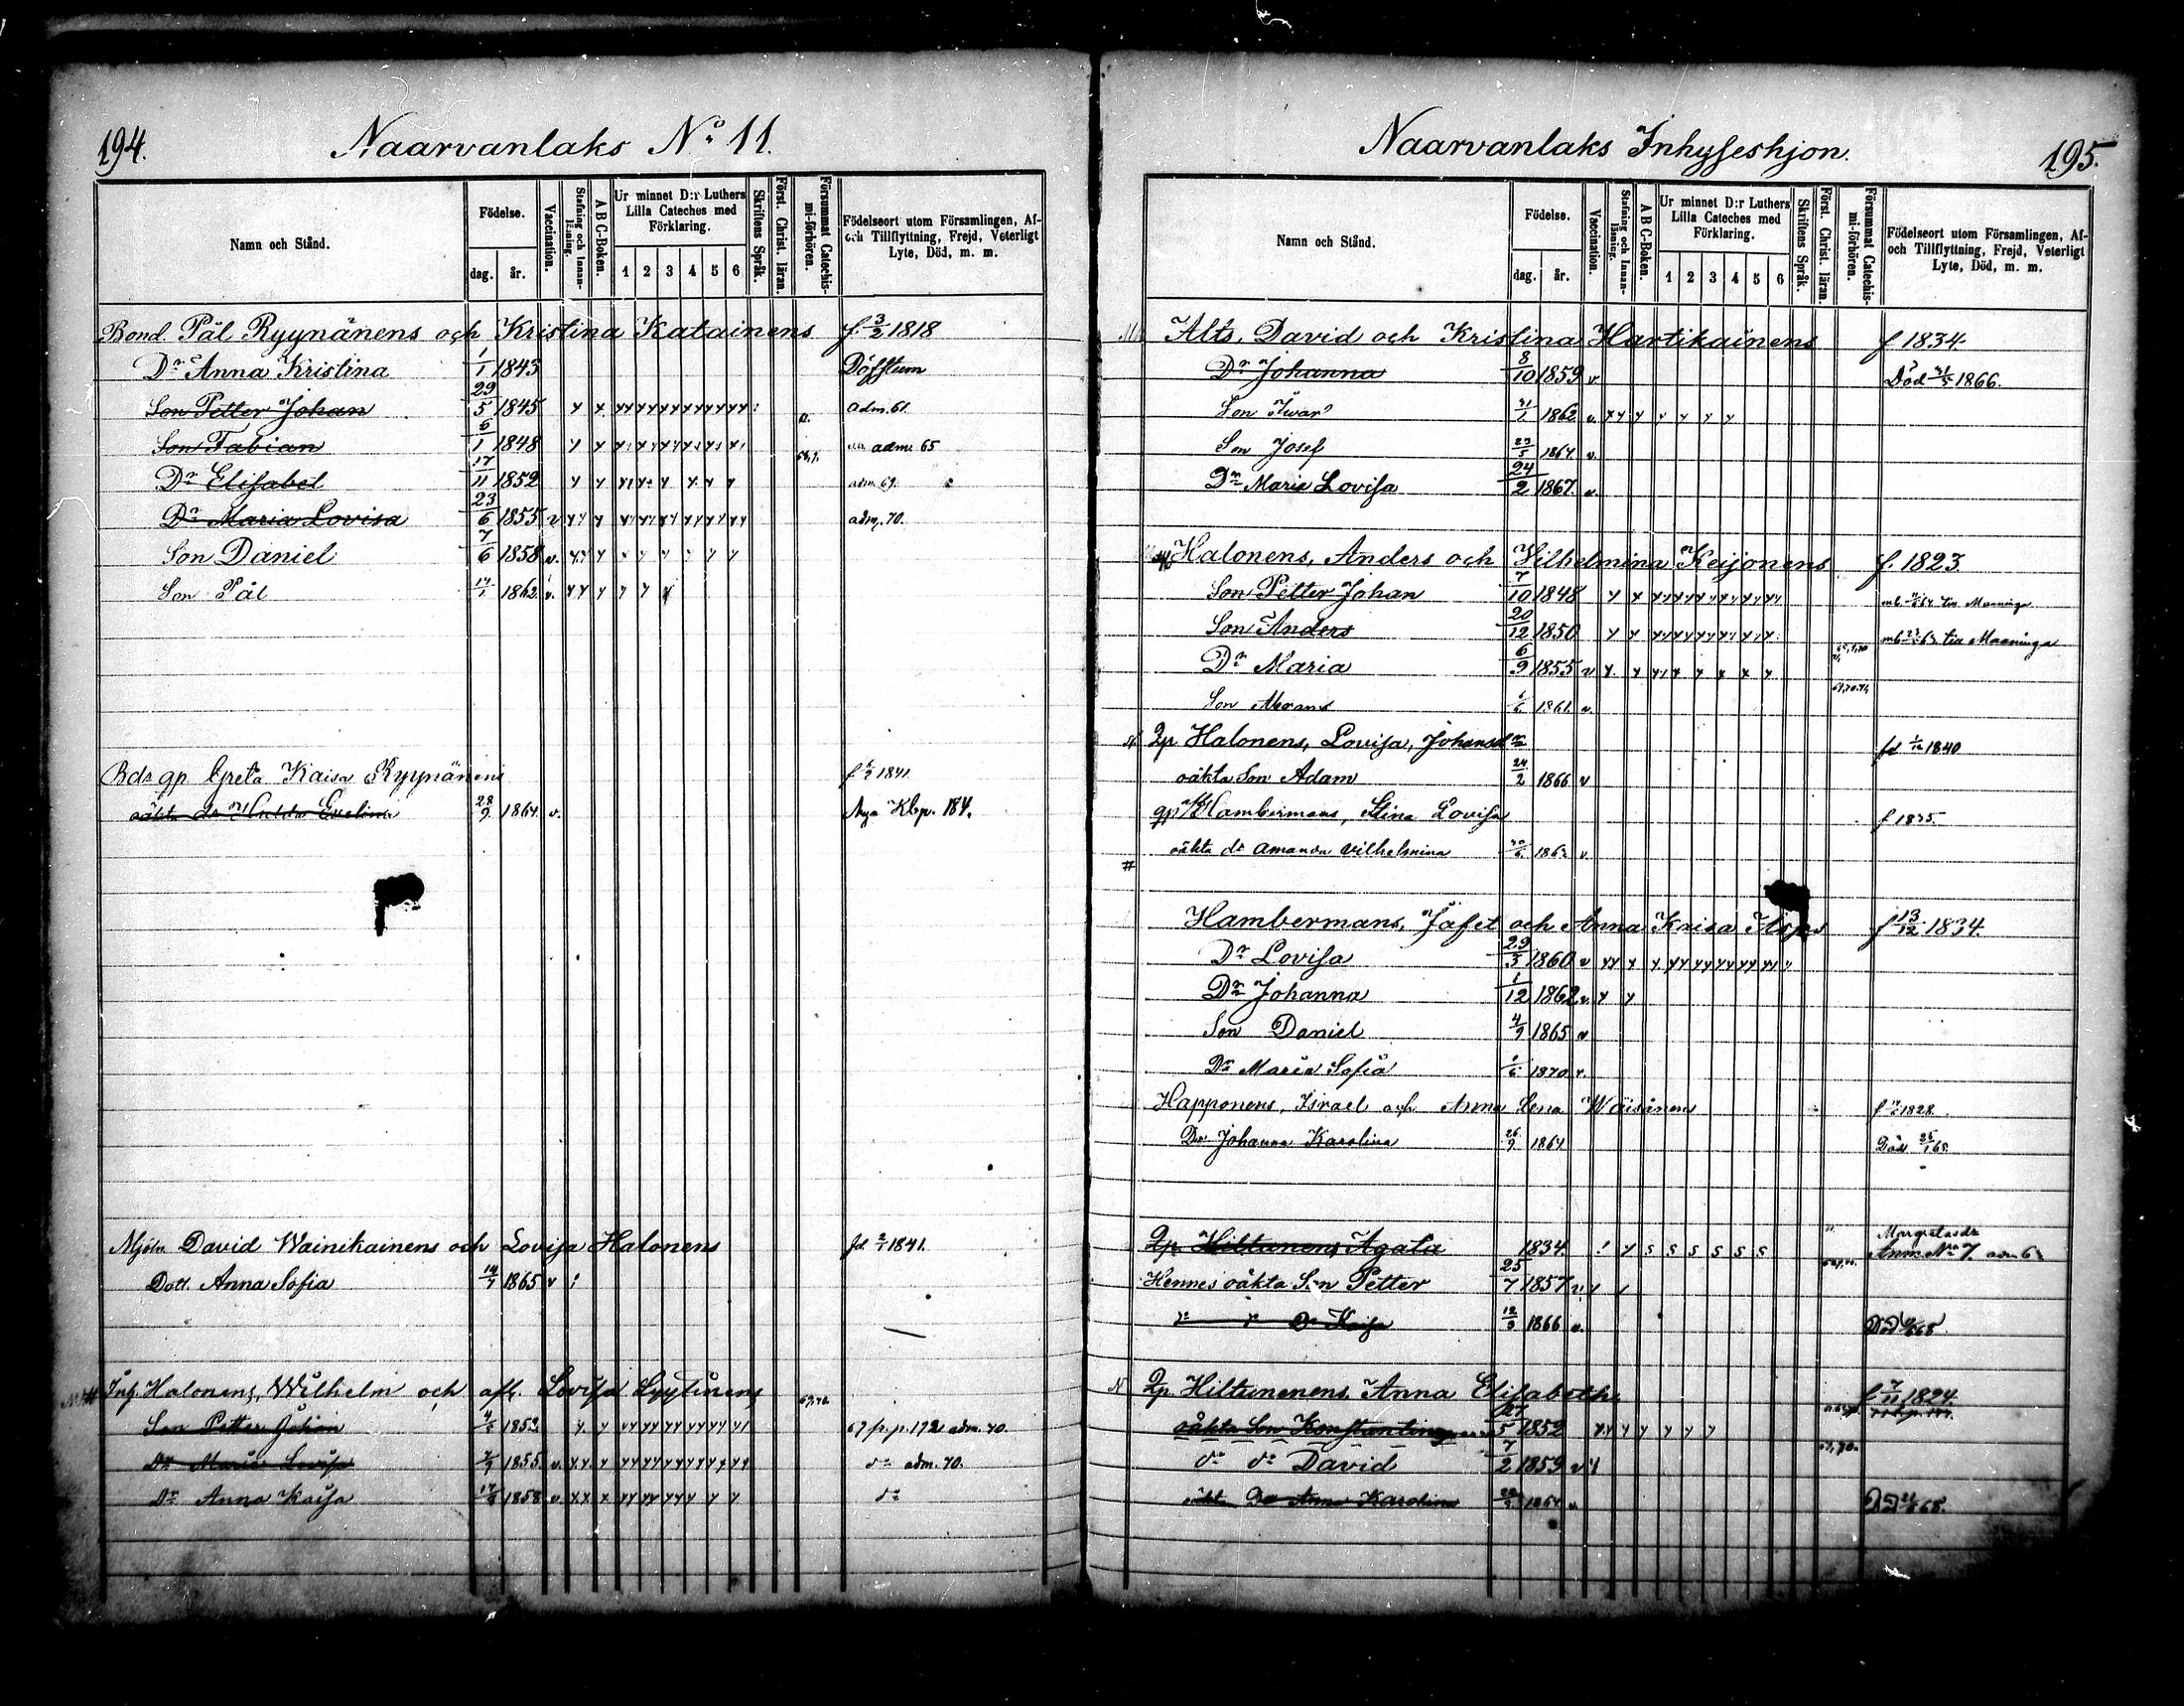 194.
Naarvanlaks No 11.
Namn och Stånd.
Födelse.
dag. år.
Vaccination.
Stafning och Innanläsning.
A B C-Boken.
Ur minnet D:r Luthers Lilla Cateches med Förklaring.
1 2 3 4 5 6
Skriftens Språk.
Först. Christ. läran.
Försummat Catechismi-förhören.
Födelseort utom Församlingen, Af- och Tillflyttning, Frejd, Veterligt Lyte, Död, m. m.
Bond. Pål Ryynänens och Kristina Katainens f. 3/2 1818
Dr Anna Kristina 1/1 1843 Döfstum
Son Petter Johan 29/5 1845 adm. 61.
Son Fabian 6/1 1848 adm. 65
Dr Elisabet 17/11 1852 adm. 69.
Dr Maria Lovisa 23/6 1855 v adm. 70.
Son Daniel 7/6 1858 v.
Son Pål 1862 v.
Bdr gp Greta Kaisa Ryynänens 1841
oäkta dr Evelina 28/9 1864 v. Nya Kbp. 184.
Mjöln David Wainikainens och Lovisa Halonens fd. 1841.
Dott. Anna Sofia 1865 v
Inh. Halonens, Wilhelm och afl. Lovisa Lyytinens
Son Petter Johan 1852 67 p.p. 172 adm. 70.
Dr Maria Lovisa 1855 v. do adm. 70.
Dr Anna Kaisa 1858 v. do
Naarvanlaks Inhyseshjon.
195.
Namn och Stånd.
Födelse.
dag. år.
Vaccination.
Stafning och Innanläsning.
A B C-Boken.
Ur minnet D:r Luthers Lilla Cateches med Förklaring.
1 2 3 4 5 6
Skriftens Språk.
Först. Christ. läran.
Försummat Catechismi-förhören.
Födelseort utom Församlingen, Af- och Tillflyttning, Frejd, Veterligt Lyte, Död, m. m.
Alts, David och Kristina Hartikainens f 1834
Dr Johanna 8/10 1859 v Död 1866.
Son Ivar 1862 v.
Son Josef 1864 v.
Dr Maria Lovisa 24/2 1867. v.
Halonens, Anders och Vilhelmina Keijonens f. 1823
Son Petter Johan 7/10 1848
Son Anders 20/12 1850 till Maaninga
Dr Maria 6/9 1855 v
Son 1861. v.
Qp Halonens, Lovisa, Johansdr fd 1840
oäkta Son Adam 24/2 1866 v
gp Hambermans, Stina Lovisa f 1835.
oäkta dr Amanda Vilhelmina v.
Hambermans, Jafet och Anna Kaisa f 13/12 1834.
Dr Lovisa 29/3 1860 v
Dr Johanna 1/12 1862 v.
Son Daniel 4/9 1865 v
Dr Maria Sofia 1870 v.
Happonens, Israel och Anna Lena Wäisänens 1828
Dr Johanna Karolina 26/9 1864 Död 65.
Qp Hiltunens Agata 1834 Anm. No 7.
Hennes oäkta Son Petter 25/7 1857
Dr Kaisa 12/3 1866 v. Död 68.
Qp Hiltunenens Anna Elisabeth f 7/11 1824.
oäkta Son Konstantin 27/5 1852
do do David 7/2 1859
Dr Anna Karolina 1864 v Död 68.